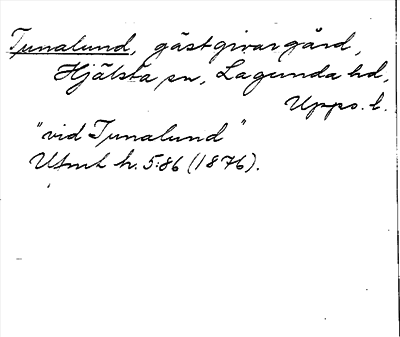 Tunalund, gästgivargård,
Hjälsta sn, Lagunda hd,
Upps. l.
"vid Tunalund"
Utmk h. 5:86 (1876).